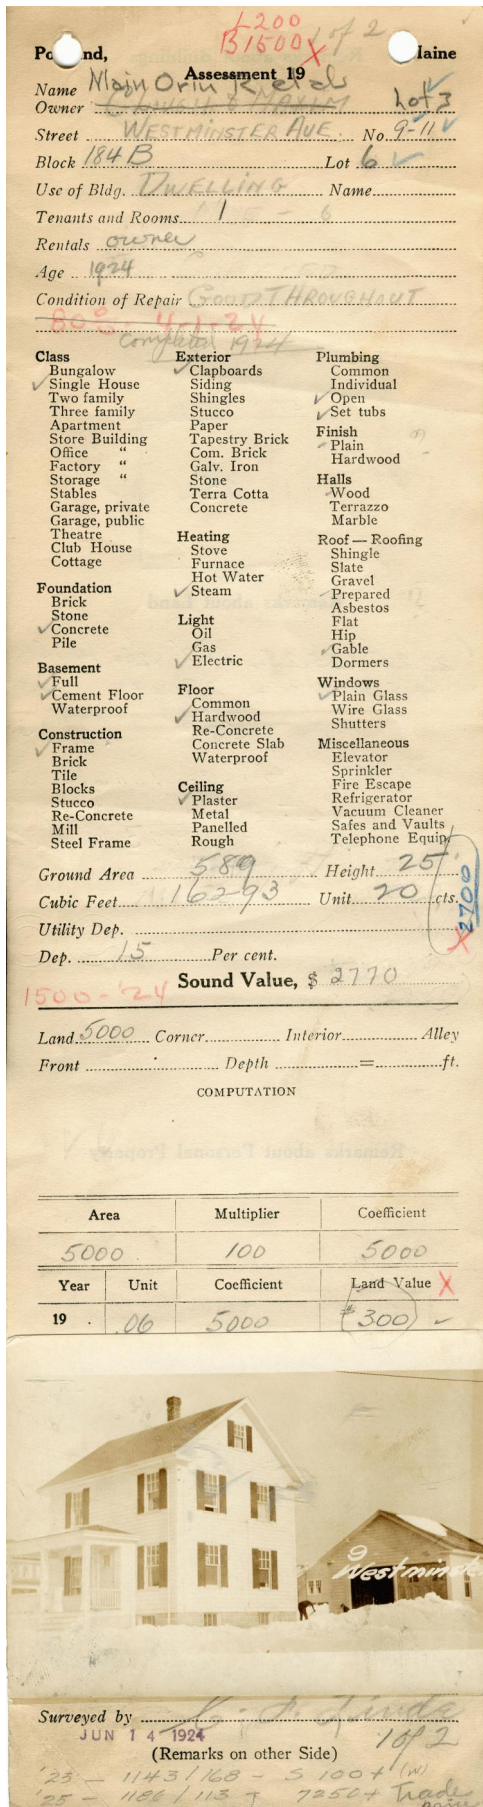 L200 1 of 2
B1500 X
Po nd, Maine
Assessment 19
Name Main Orin K etals
Owner Lot 3
Street WESTMINSTER AVE. No. 9-11
Block 184B Lot 6
Use of Bldg. DWELLING Name
Tenants and Rooms 1 - 6
Rentals owner
Age 1924
Condition of Repair GOOD THROUGHOUT
80% - 4-1-24
Completed 1924
Class
Bungalow
Single House
Two family
Three family
Apartment
Store Building
Office "
Factory "
Storage "
Stables
Garage, private
Garage, public
Theatre
Club House
Cottage
Foundation
Brick
Stone
Concrete
Pile
Basement
Full
Cement Floor
Waterproof
Construction
Frame
Brick
Tile
Blocks
Stucco
Re-Concrete
Mill
Steel Frame
Exterior
Clapboards
Siding
Shingles
Stucco
Paper
Tapestry Brick
Com. Brick
Galv. Iron
Stone
Terra Cotta
Concrete
Heating
Stove
Furnace
Hot Water
Steam
Light
Oil
Gas
Electric
Floor
Common
Hardwood
Re-Concrete
Concrete Slab
Waterproof
Ceiling
Plaster
Metal
Panelled
Rough
Plumbing
Common
Individual
Open
Set tubs
Finish
Plain
Hardwood
Halls
Wood
Terrazzo
Marble
Roof — Roofing
Shingle
Slate
Gravel
Prepared
Asbestos
Flat
Hip
Gable
Dormers
Windows
Plain Glass
Wire Glass
Shutters
Miscellaneous
Elevator
Sprinkler
Fire Escape
Refrigerator
Vacuum Cleaner
Safes and Vaults
Telephone Equip.
Ground Area 589 Height 25
Cubic Feet 16293 Unit 20 cts.
2700
X
Utility Dep.
Dep. 15 Per cent.
Sound Value, $ 2770
1500-'24
Land 5000 Corner Interior Alley
Front Depth = ft.
COMPUTATION
Remarks about Personal Property
Area Multiplier Coefficient
5000 100 5000
Year Unit Coefficient Land Value X
19 .06 5000 $300
9
Westminste
Surveyed by
JUN 14 1924
1 of 2
(Remarks on other Side)
'23 - 1143/168 - $100+ (W)
'25 - 1186/113 - 7250+ Trade
price